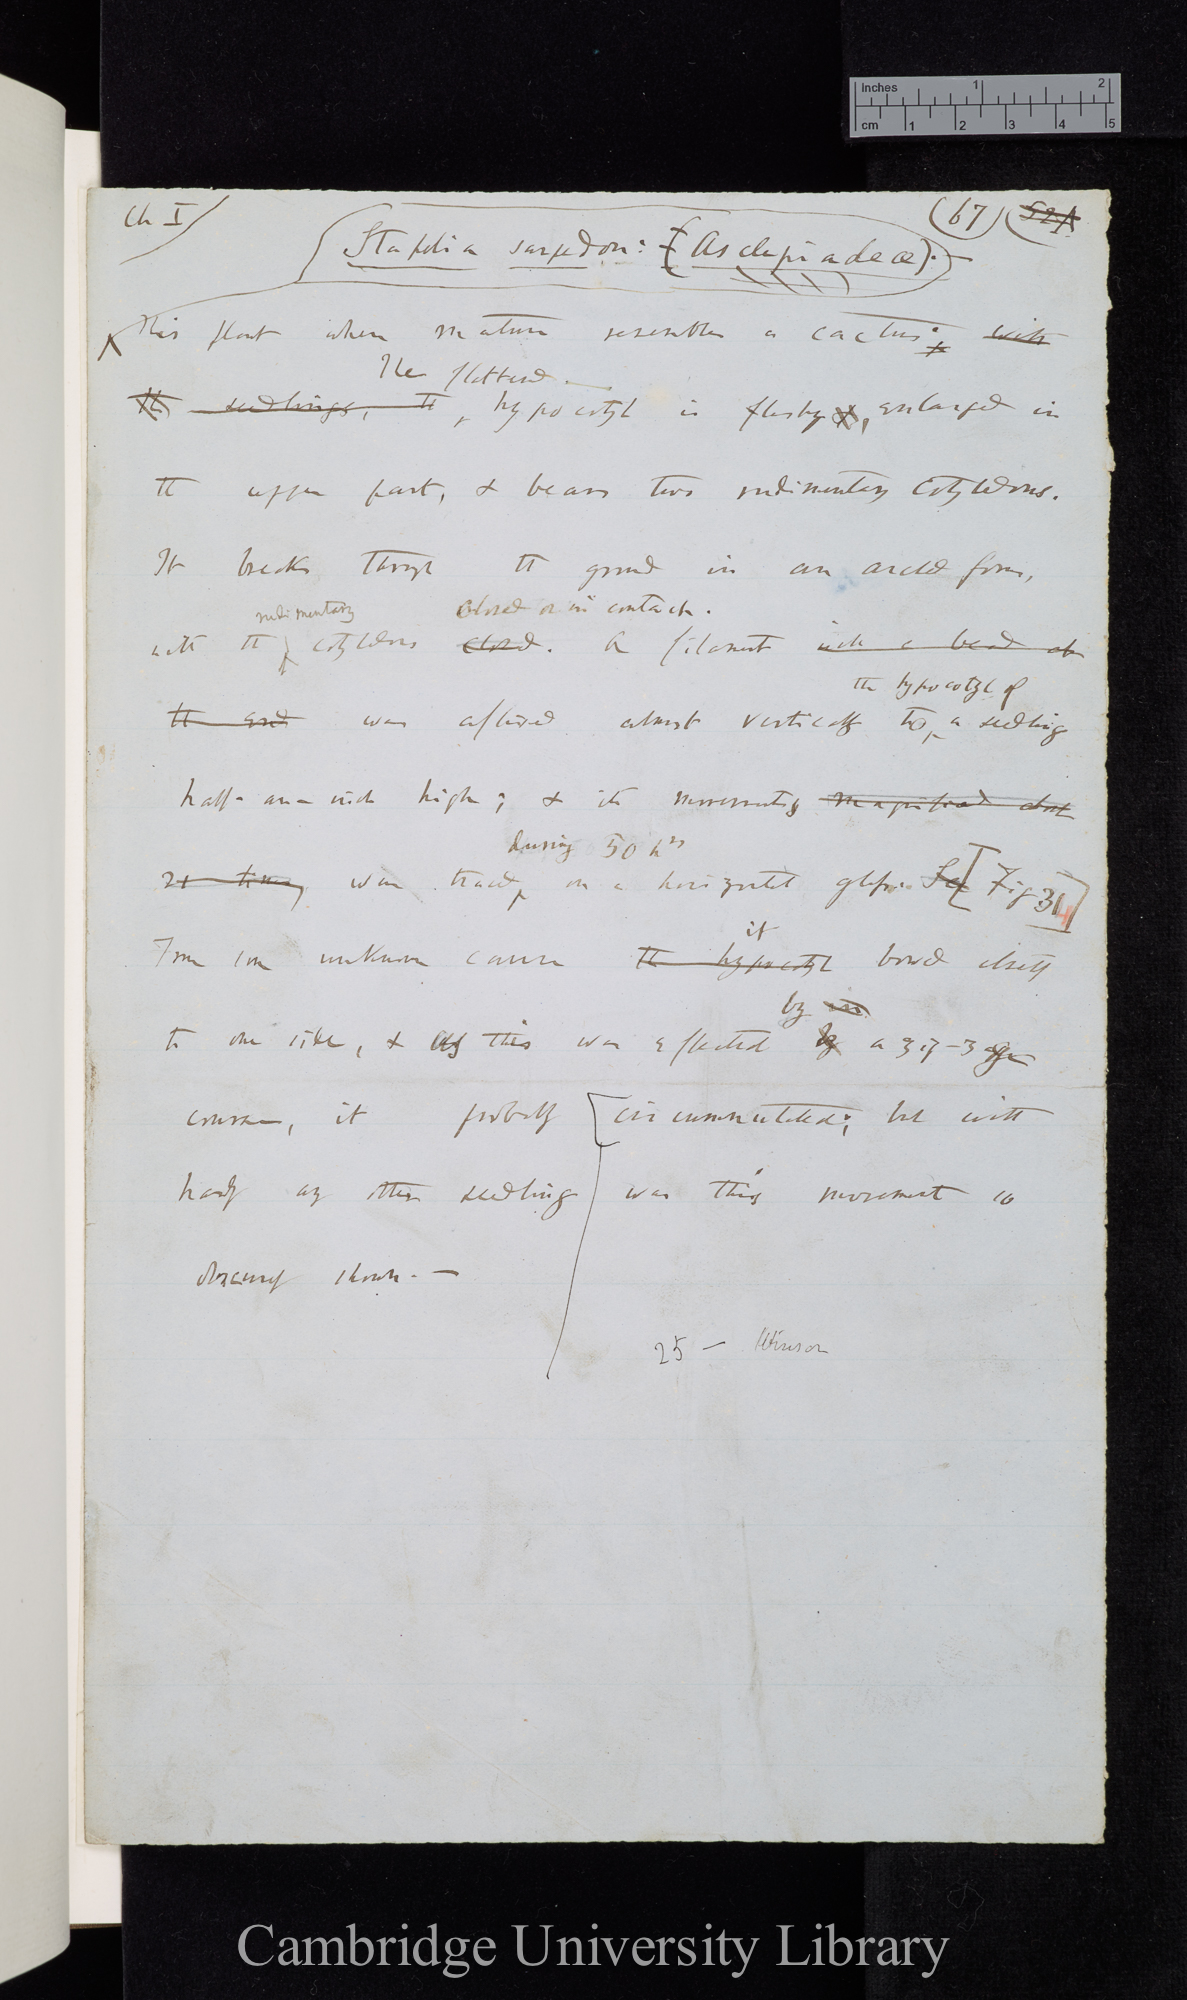 Inches 1 2
cm 1 2 3 4 5
Ch I (67) (52A
Stapelia sarpedon: (Asclepiadeæ).—
This plant when mature resembles a cactus; with
The flattened
the seedlings, the hypocotyl is fleshy &, enlarged in
the upper part, & bears two rudimentary cotyledons.
It breaks through the ground in an arched form,
rudimentary closed or in contact.
with the cotyledons closed. A filament with a bead at
the hypocotyl of
the end was affixed almost vertically to a seedling
half-an-inch high; & its movements magnified about
during 50 hrs
21 times, was traced on a horizontal glass. See [Fig 34]
it
From some unknown cause the hypocotyl bowed itself
by in
to one side, & as this was effected by a zig-zag
course, it probably [circumnutated; but with
hardly any other seedling was this movement so
obscurely shown.—
25 —
Cambridge University Library